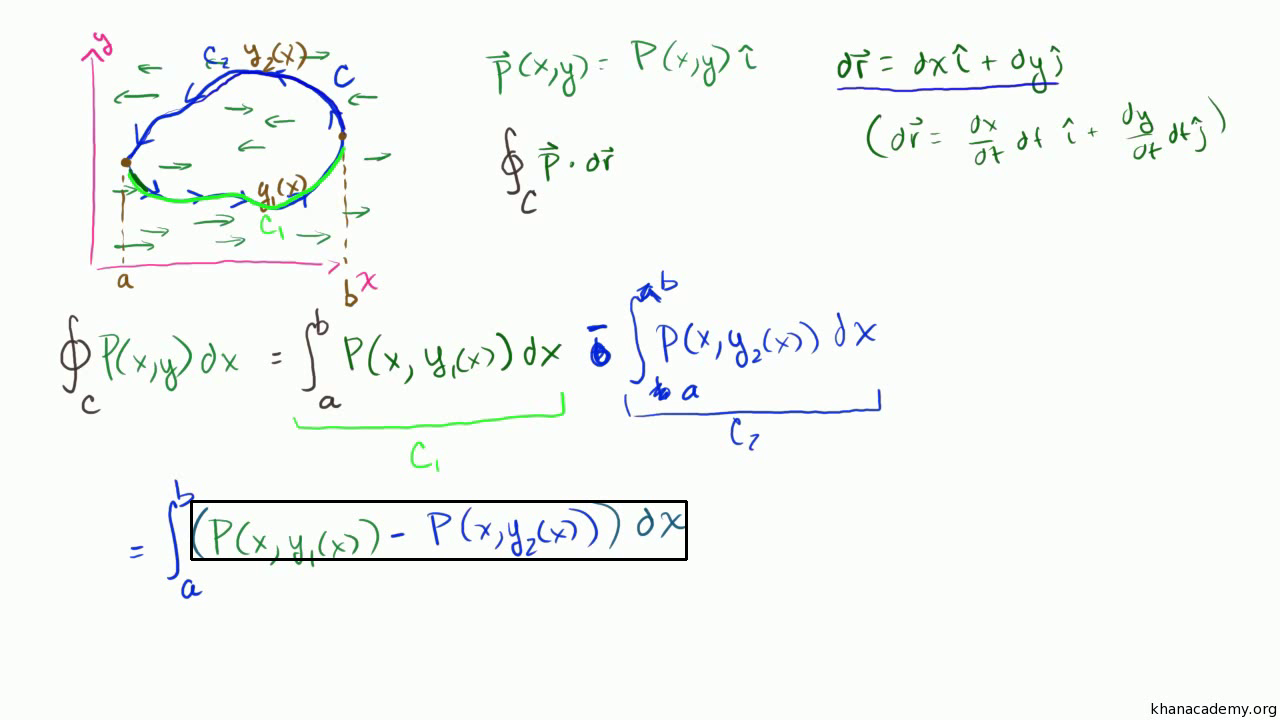 y
C₂ y₂(x)
C
y₁(x)
C₁
a
b
x
P⃗(x,y) = P(x,y) î
dr⃗ = dx î + dy ĵ
(dr⃗ = dx/dt dt î + dy/dt dt ĵ)
∮_C P⃗ · dr⃗
∮_C P(x,y) dx = ∫_a^b P(x, y₁(x)) dx - ∫_a^b P(x, y₂(x)) dx
C₁
C₂
= ∫_a^b (P(x, y₁(x)) - P(x, y₂(x))) dx
khanacademy.org